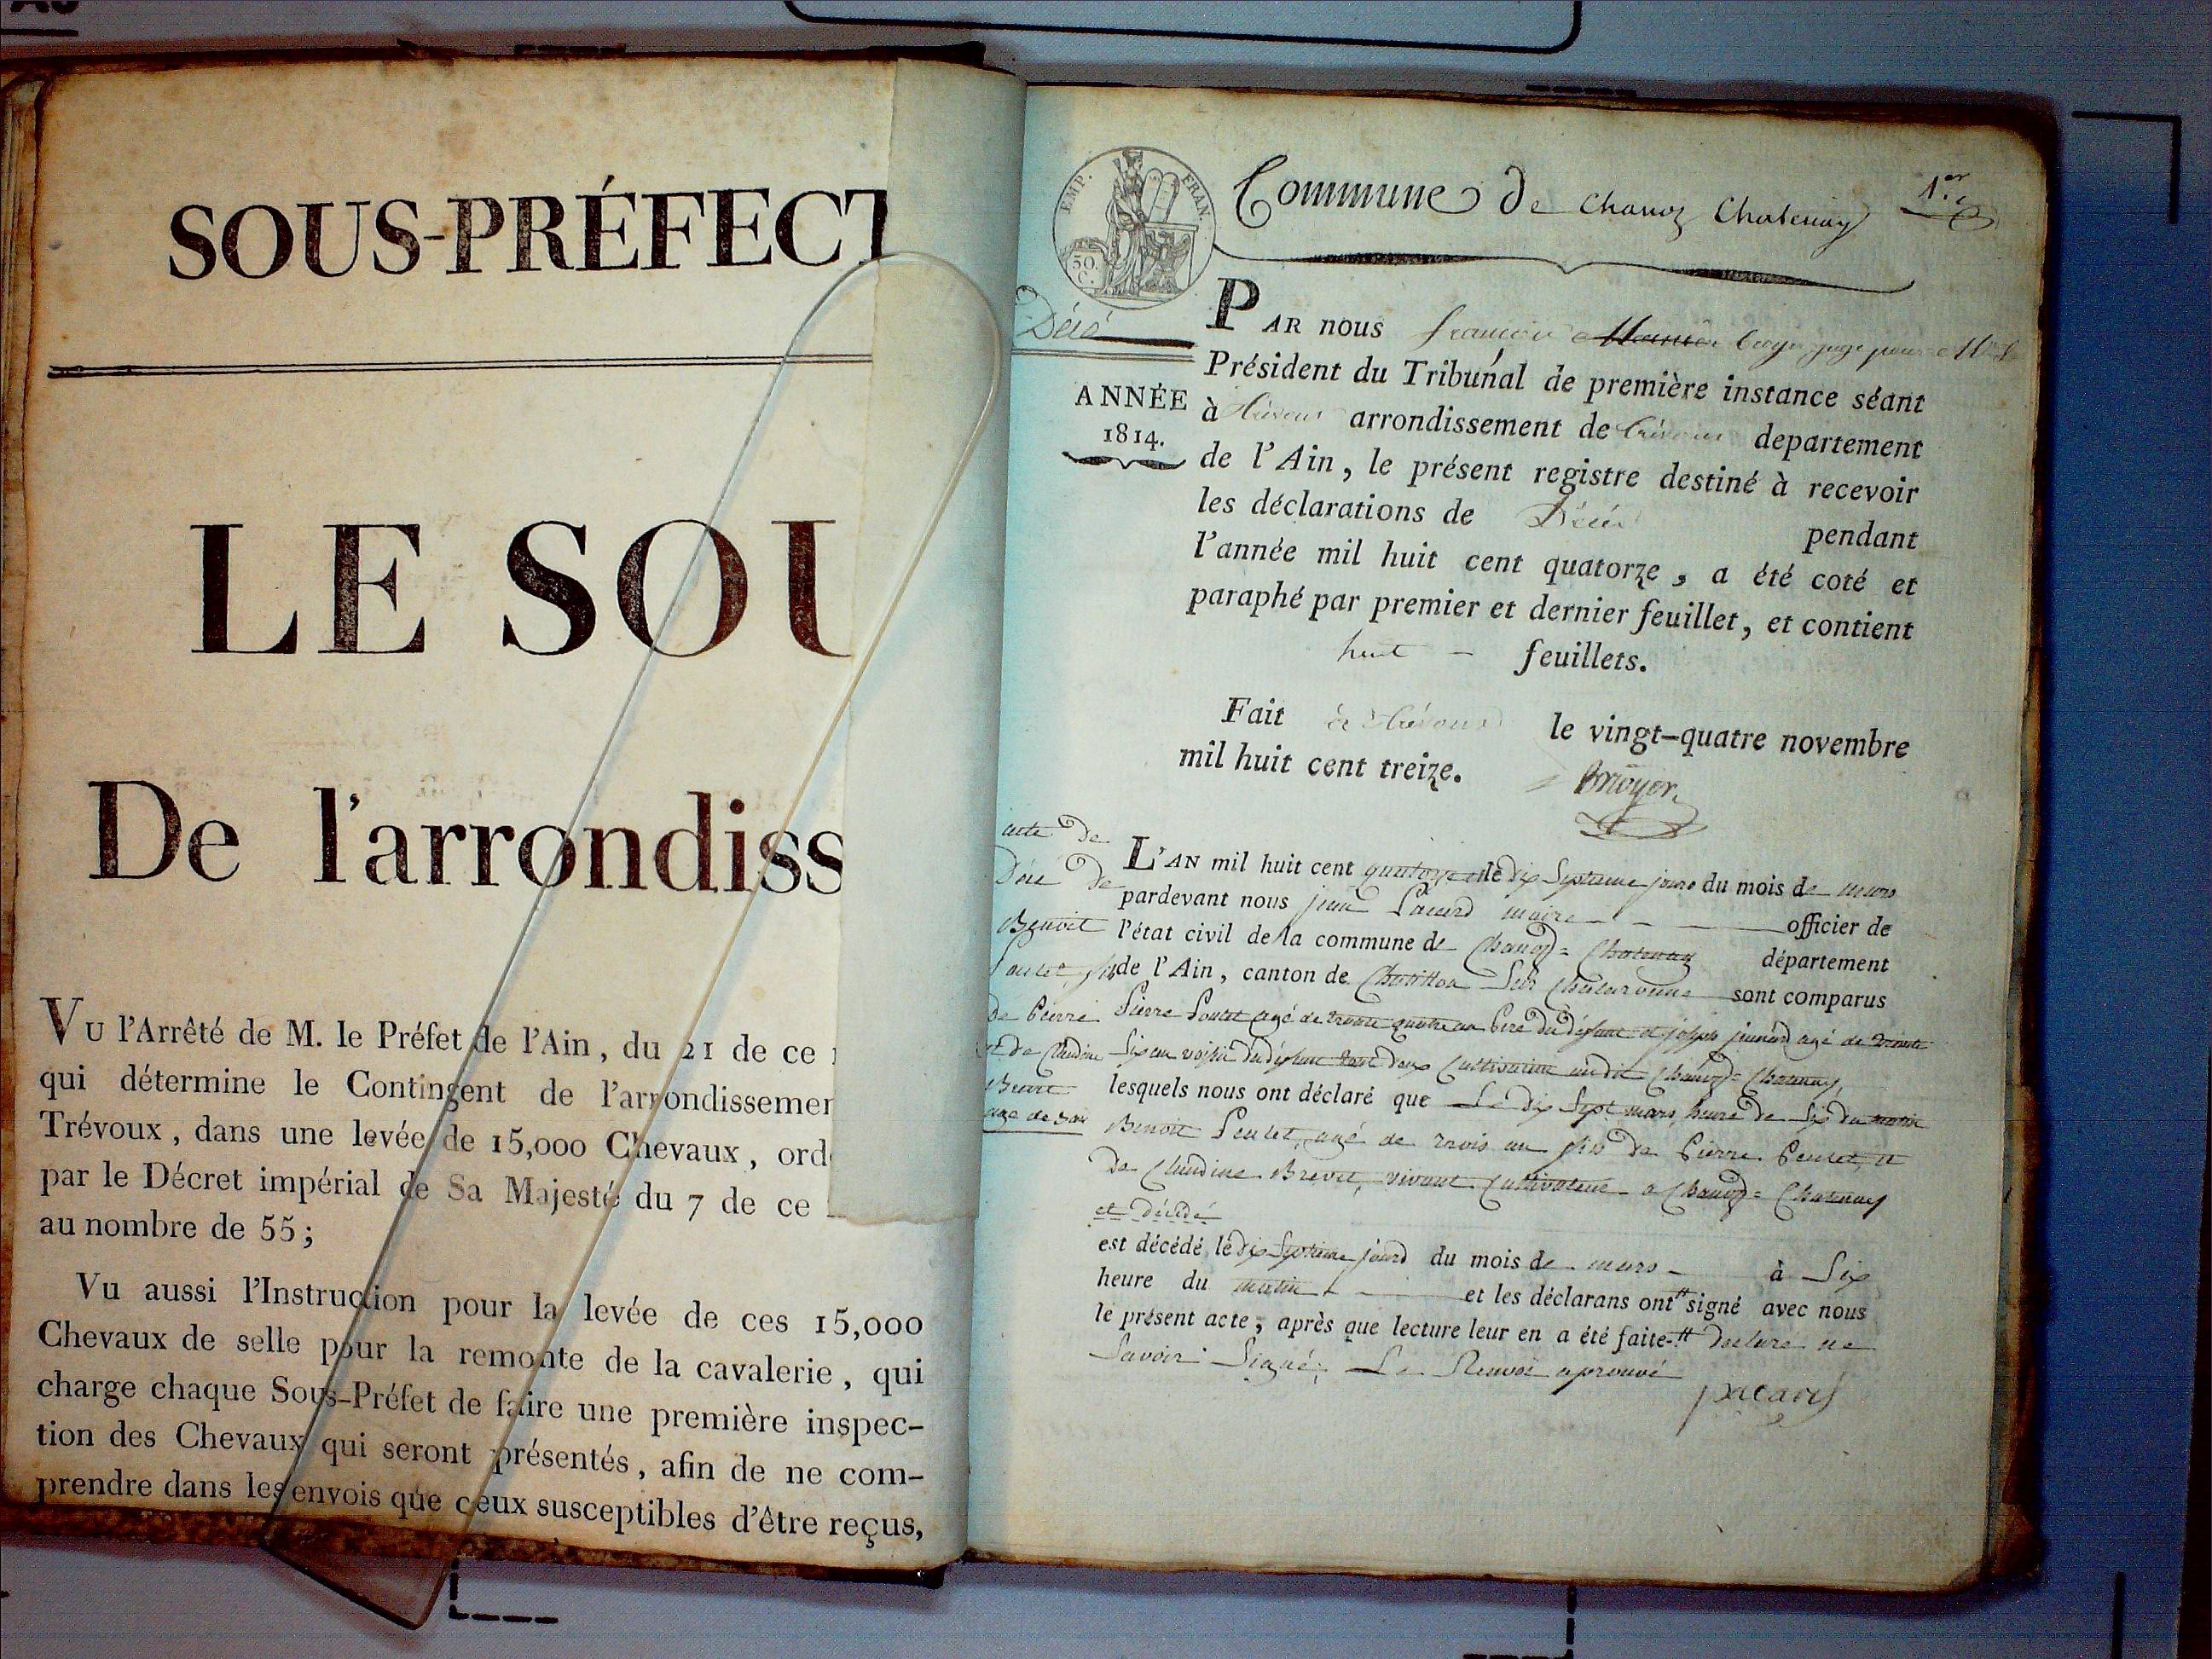 SOUS-PRÉFECT
LE SOU
De l'arrondiss
VU l'Arrêté de M. le Préfet de l'Ain, du 21 de ce
qui détermine le Contingent de l'arrondissemen
Trévoux, dans une levée de 15,000 Chevaux, ord
par le Décret impérial de Sa Majesté du 7 de ce
au nombre de 55;
Vu aussi l'Instruction pour la levée de ces 15,000
Chevaux de selle pour la remonte de la cavalerie, qui
charge chaque Sous-Préfet de faire une première inspec-
tion des Chevaux qui seront présentés, afin de ne com-
prendre dans les envois que ceux susceptibles d'être reçus,
EMP. FRAN.
50. C.
Commune De chanoz Chatenay 1.er
Décé
ANNÉE
1814.
PAR nous francois
Président du Tribunal de première instance séant
à trévoux arrondissement de trévoux departement
de l'Ain, le présent registre destiné à recevoir
les déclarations de Décès pendant
l'année mil huit cent quatorze, a été coté et
paraphé par premier et dernier feuillet, et contient
huit feuillets.
Fait à trévoux le vingt-quatre novembre
mil huit cent treize.
acte De
Décé De
Benoit
fils
De Pierre
et de Claudine
Brevet
age de 3 an
L'AN mil huit cent quatorze le dix Septieme jour du mois de mars
pardevant nous jean Pacard maire officier de
l'état civil de la commune de Chanoz = Chatenay département
de l'Ain, canton de Chatillon Sur Chalaronne sont comparus
Pierre Poulet agé de trente quatre an Pere du défunt et joseph agé de trente
Six an voisin du défunt tout deux Cultivateur audit Chanoz = Chatenay,
lesquels nous ont déclaré que Le dix Sept mars, heure de Six du matin
Benoit Poulet, agé de trois an fils de Pierre Poulet, et
De Claudine Brevet, vivant Cultivateur a Chanoz = Chatenay
et décédé
est décédé, le dix Septieme jour du mois de mars à Six
heure du matin et les déclarans ont # signé avec nous
le présent acte, après que lecture leur en a été faite. # Declare ne
Savoir Signé, Le Renvoi aprouvé
pacard